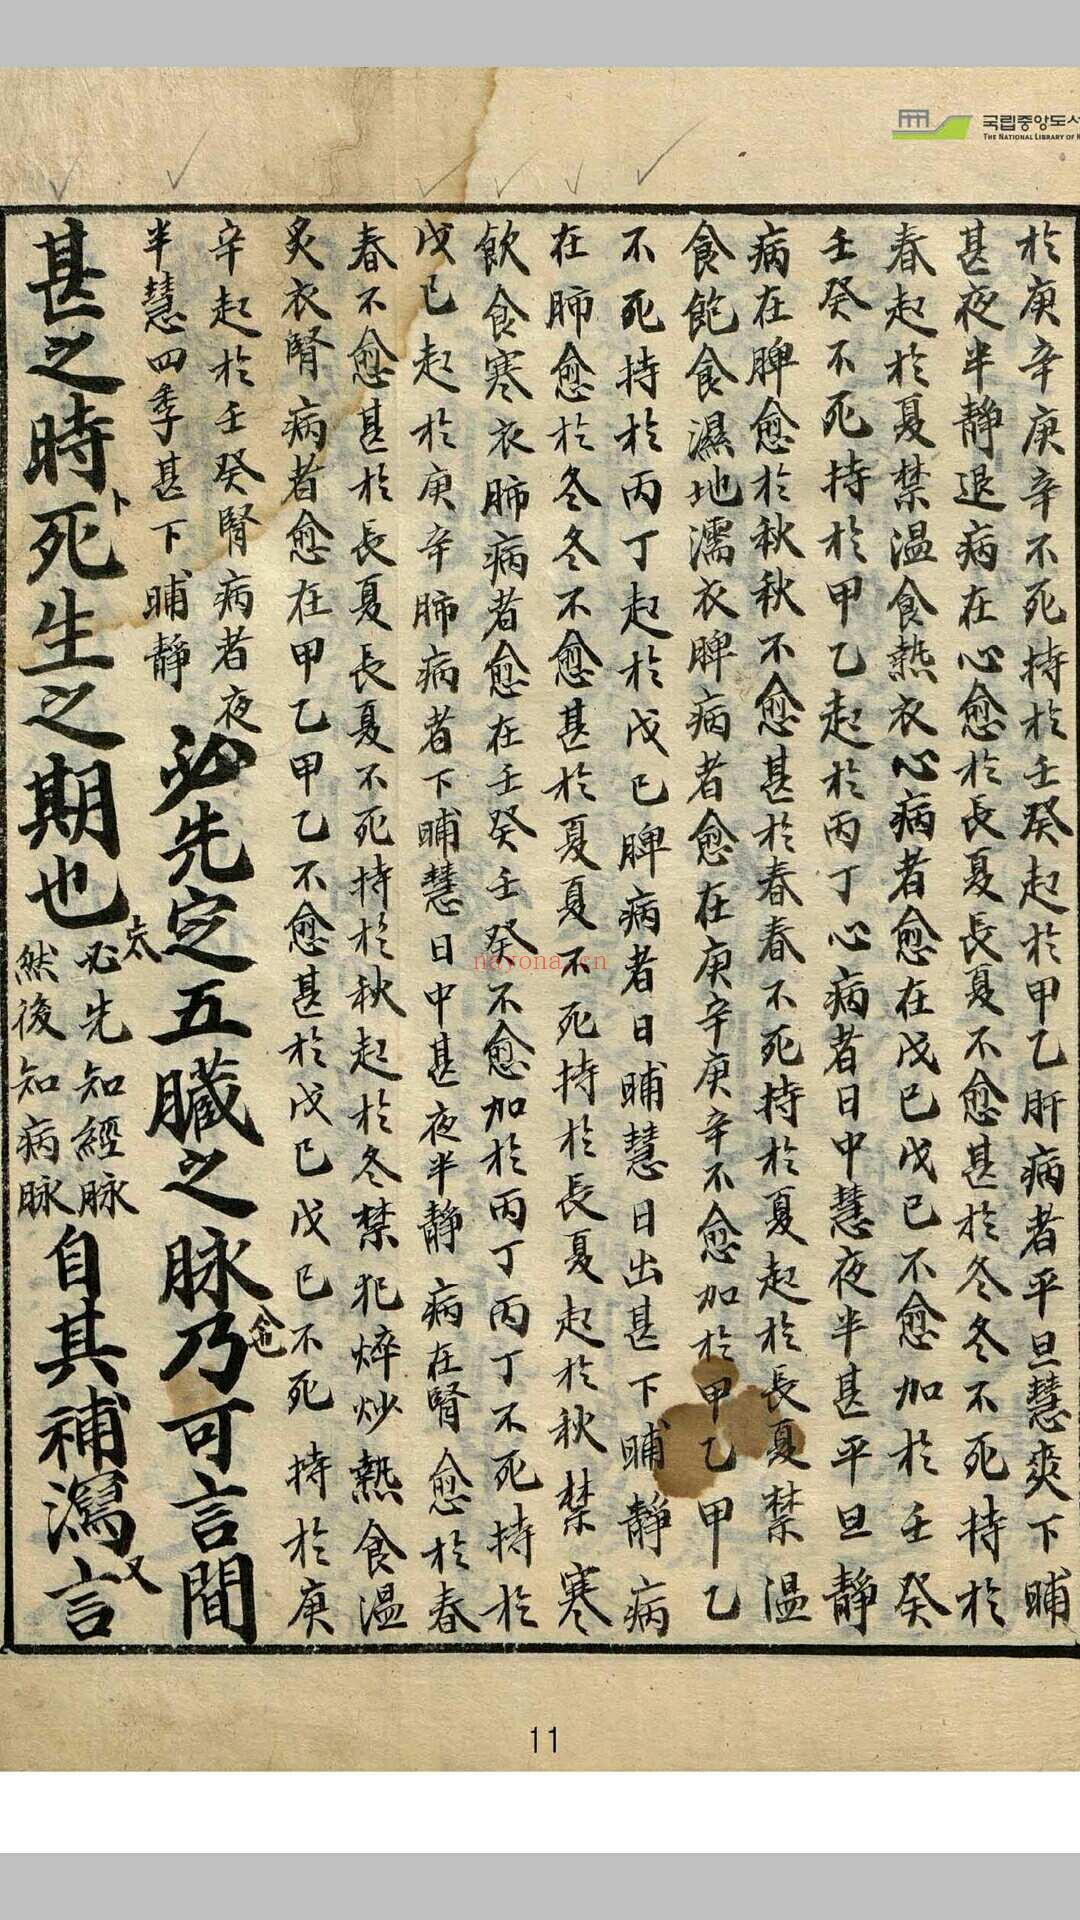 국립중앙도서
THE NATIONAL LIBRARY OF K
於庚辛庚辛不死持於壬癸起於甲乙肝病者平旦慧爽下晡
甚夜半靜退病在心愈於長夏長夏不愈甚於冬冬不死持於
春起於夏禁温食熱衣心病者愈在戊已戊已不愈加於壬癸
壬癸不死持於甲乙起於丙丁心病者日中慧夜半甚平旦静
病在脾愈於秋秋不愈甚於春春不死持於夏起於長夏禁温
食飽食濕地濡衣脾病者愈在庚辛庚辛不愈加於甲乙甲乙
不死持於丙丁起於戊已脾病者日晡慧日出甚下晡靜病
在肺愈於冬冬不愈甚於夏夏不死持於長夏起於秋禁寒
飲食寒衣肺病者愈在壬癸壬癸不愈加於丙丁丙丁不死持於
戊已起於庚辛肺病者下晡慧日中甚夜半靜病在腎愈於春
春不愈甚於長夏長夏不死持於秋起於冬禁犯焠炒熱食温
炙衣腎病者愈在甲乙甲乙不愈甚於戊已戊已不死持於庚
辛起於壬癸腎病者夜
半慧四季甚下晡静
必先定五臟之脉乃可言間
甚之時卜死生之期也太
必先知經脉
然後知病脉
自其補瀉又言
nayona.cn
11